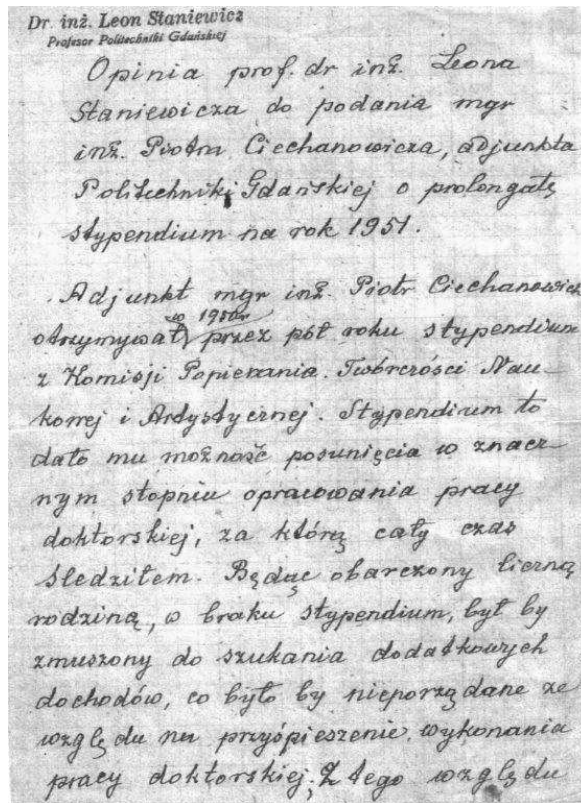 Dr. inż. Leon Staniewicz
Profesor Politechniki Gdańskiej
Opinia prof. dr inż. Leona
Staniewicza do podania mgr
inż. Piotra Ciechanowicza, adjunkta
Politechniki Gdańskiej o prolongatę
stypendium na rok 1951.
Adjunkt mgr inż. Piotr Ciechanowicz
w 1950r
otrzymywał przez pół roku stypendium
z Komisji Popierania Twórczości Nau-
kowej i Artystycznej. Stypendium to
dało mu możność posunięcia w znacz-
nym stopniu opracowania pracy
doktorskiej, za którą cały czas
śledziłem. Będąc obarczony liczną
rodziną, w braku stypendium, był by
zmuszony do szukania dodatkowych
dochodów, co było by nieporządane ze
względu na przyśpieszenie wykonania
pracy doktorskiej. Z tego względu